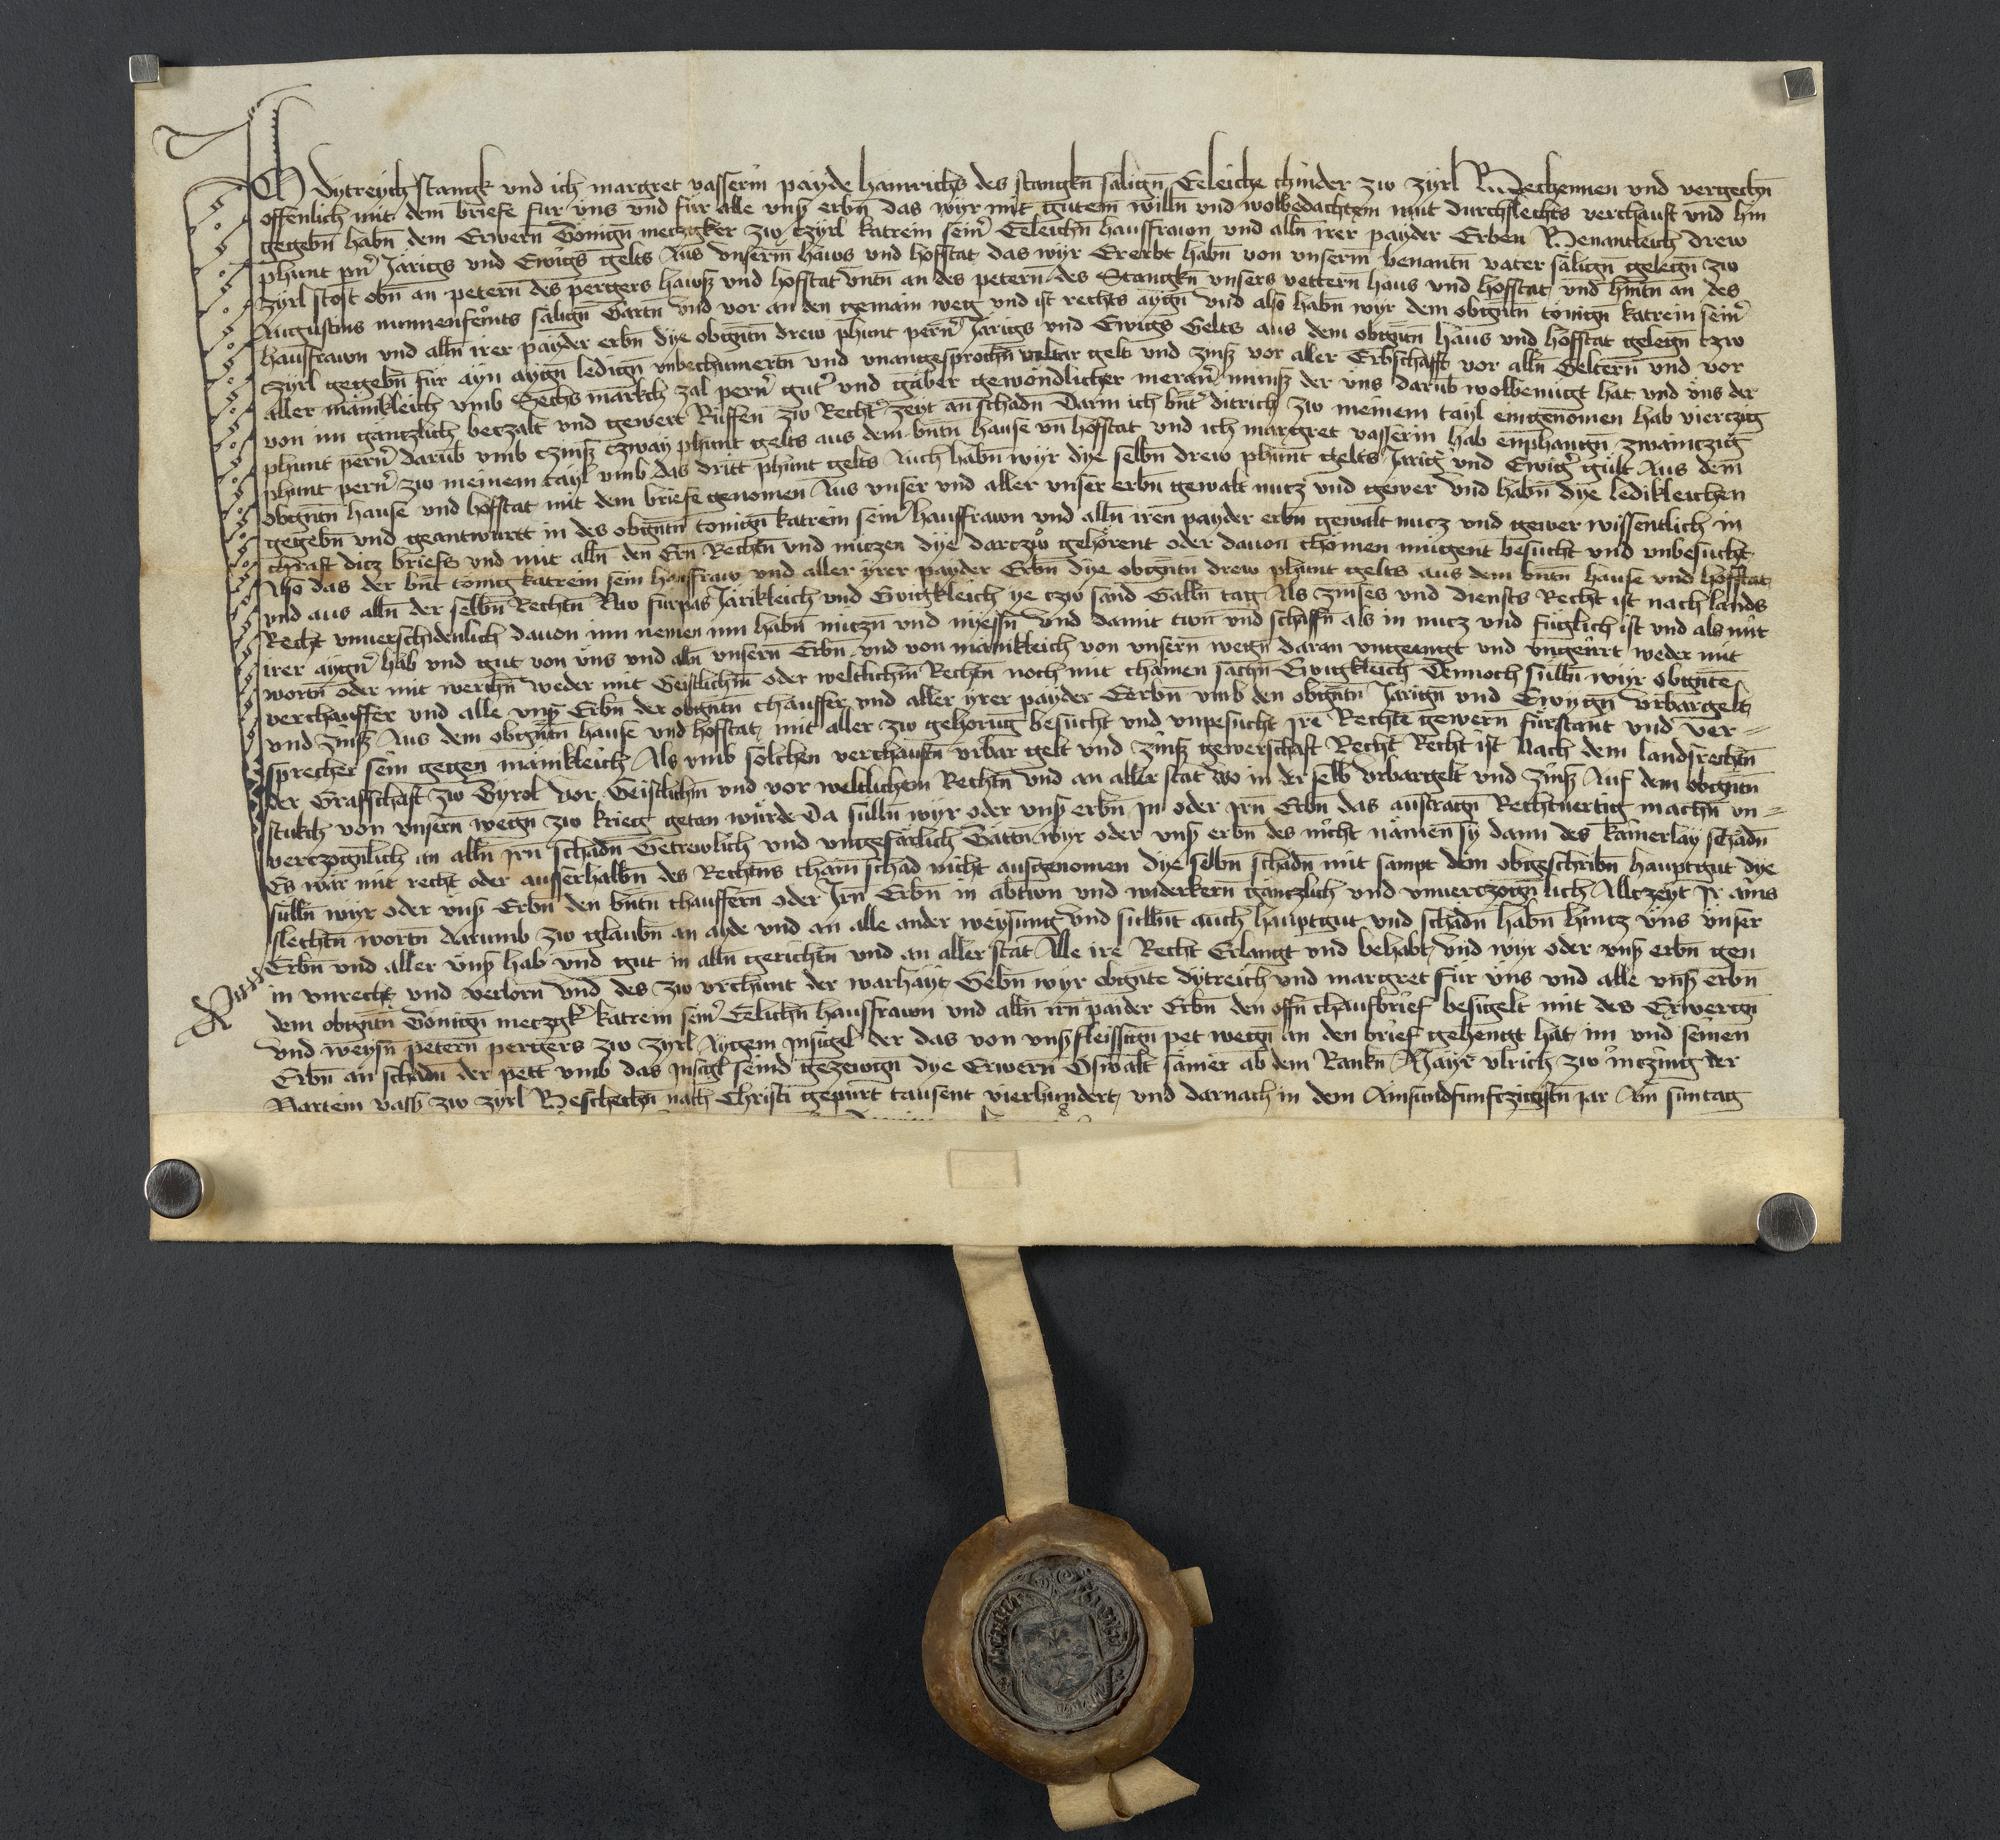 Ich dytreych stangk vnd ich margret vasserin payde hainrichs des stangkn̄ salign̄ Eeleiche chinder zw zyrl Bechennen vnd vergechn̄
offenlich mit dem briefe fur vns vnd für alle vnsͬ erbn̄ das wyr mit gutem willn̄ vnd wolbedachtem mut durchslechts verchauft vnd hin
gegebn̄ habn̄ dem Erwern̄ Tönign̄ meczgker zw czyrl katrein seinͬ Eeleichn̄ hausfrawn vnd alln̄ irer payder Erben Benantleich drew
phunt pnͬ Jarigs vnd Ewigs gelts Aus vnserm haws vnd hofstat das wyr Ererbt habn̄ von vnserm benantn̄ vater säligen̄ gelegn̄ zw
zyrl stost obn̄ an petern̄ des pergers hawsz vnd hofstat vntn̄ an des petern̄ des Stangkn̄ vnsers vettern̄ haus vnd hofstat vnd hintn̄ an des
Augustins salign̄ Gartn̄ vnd vor an den gemain weg vnd ist rechts aygn̄ vnd also habn̄ wyr dem obtgn̄tn̄ tönign̄ katrein seinͬ
hausfrawn vnd alln̄ irer payder erbn̄ dye obtgn̄tn̄ drew phunt pernͬ Järigs vnd Ewigs Gelts aus dem obtgn̄tn̄ haus vnd hofstat gelegn̄ czw
czyrl gegebn̄ für ayn aygn̄ ledign̄ vnbechumertn̄ vnd vnangesprochn̄ vrbar gelt vnd zinsz vor aller Erbschafft vor alln̄ Geltern̄ vnd vor
aller mänikleich vmb Sechs markch zal pernͬ gutͬ vnd gäber gewöndlicher meranͬ münsz der vns darūb wolbenügt hat vnd vns der
von im gänczlich beczalt vnd gewert Rüffen̄ zw Rechtͬ zeyt an schadn̄ Darin ich bn̄tͬ ditrich zw meinem tayl eingenomen hab vierczig
phunt pernͬ darūb vmb czinsz czway phunt gelts aus dem bn̄tn̄ hause vn̄ hofstat vnd ich margret vasserin hab emphangn̄ zwainczig
phunt pernͬ zw meinem tayl vmb das dritt phunt gelts Auch habn̄ wyr dye selbn̄ drew phunt gelts Järigͬ vnd Ewigͬ gült Aus dem
obtgn̄tn̄ hause vnd hofstat mit dem briefe genomen Aus vnser vnd aller vnser erbn̄ gewalt nucz vnd gewer vnd habn̄ dye ledikleichen
gegebn̄ vnd geantwurtt in des obtgn̄tn̄ tönign̄ katrein seinͬ hausfrawn vnd alln̄ iren payder erbn̄ gewalt nucz vnd gewer wissentlich in
chraft dicz briefs vnd mit alln̄ den Ern̄ Rechtn̄ vnd nüczen dye darczů gehörent oder dauon chömen mügent besucht vnd vnbesucht
Also das der bn̄t tönig katrein sein hausfraw vnd aller yrer payder Erbn̄ dye obtgn̄tn̄ drew phunt gelts aus dem bn̄tn̄ hause vnd hofstat
vnd aus alln̄ der selbn̄ Rechtn̄ Nw fürpas Järikleich vnd Ewigkleich ye czw sand Galln̄ tag Als zinses vnd diensts Recht ist nach lands
Recht vnuerschidenlich dauon inn nemen inn habn̄ niczn̄ vnd nyessn̄ vnd damit twn̄ vnd schaffn̄ als in nucz vnd füglich ist vnd als mit
irer aygnͬ hab vnd gut von vns vnd alln̄ vnsern̄ Erbn̄ vnd von mänikleich von vnsern̄ wegn̄ daran vngeengt vnd vngeirrt weder mit
wortn̄ oder mit werchn̄ weder mit Geistlichn̄ oder weltlichn̄ Rechtn̄ noch mit chainen sachn̄ Ewigkleich Dennoch sulln̄ wyr obtgn̄te
verchauffer vnd alle vnsͬ Erbn̄ der obtgn̄tn̄ chauffer vnd aller yrer payder Eerbn̄ vmb den obtgn̄tn̄ Järign̄ vnd Ewygn̄ vrbargelt
vnd zinsz Aus dem obtgn̄tn̄ hause vnd hofstat mit aller zw gehorug besucht vnd vnpesucht Jre Rechte gewern̄ fürstant vnd ver=
sprecher sein gegen mänikleich Als vmb solchen verchauftn̄ vrbar gelt vnd zinsz gewerschaft Recht Recht ist Nach dem landsrechtn̄
der Grafschaft zw Tyrol Vor Geistlichn̄ vnd vor weltlichem Rechtn̄ vnd an aller stat Wo in der selb vrbargelt vnd zinsz Auf dem obtgn̄tn̄
stukch von vnsern̄ wegn̄ zw krieg getan würde Da sulln̄ wyr oder vnsͬ erbn̄ In oder Jrn̄ Erbn̄ das austragn̄ Rechtuertig machn̄ vn=
verczogn̄lich an alln̄ Jrn̄ schadn̄ Getrewlich vnd vngefärlich Tätn̄ wyr oder vnsͬ erbn̄ des nicht nämen sy dann des kainerlay schadn̄
Es wär mit recht oder ausserhalbn̄ des Rechtns chain schad nicht ausgenomen dye selbn̄ schadn̄ mit sampt dem obtgeschribn̄ hauptgut dye
sulln̄ wyr oder vnsͬ Erbn̄ den bn̄tn̄ chauffern̄ oder Jrn̄ Erbn̄ in abtwn̄ vnd widerkern̄ gänczlich vnd vnuerczogn̄lich Allczeyt Jr ains
slechtn̄ wortn̄ darumb zw glaubn̄ an ayde vnd an alle ander weysung vnd sullnt auch hauptgut vnd schadn̄ habn̄ hincz vns vnser
Erbn̄ vnd aller vnsͬ hab vnd gut in alln̄ gerichtn̄ vnd an aller stat Alle ire Recht Erlangt vnd behabt vnd wyr oder vnsͬ erbn̄ gen
in vnrecht vnd verlorn vnd des zw vrchunt der warhayt Gebn̄ wyr obtgn̄te dytreich vnd margret für vns vnd alle vnsͬ erbn̄
dem obtgn̄tn̄ Tönign̄ meczgkͬ katrein seinͬ Eelichn̄ hausfrawn vnd alln̄ irn̄ paider Erbn̄ den offn̄ chaufbrief besigelt mit des Erwergn̄
vnd weysn̄ petern̄ pergers zw zyrl Aygem Jnsigel der das von vnsͬ fleissign̄ pet wegn̄ an den brief gehengt hat im vnd seinen
Erbn̄ an schadn̄ der pett vmb das Jnsigl seind gezewgn̄ dye Erwern̄ Oswalt sämer ab dem Rankn̄ Mayr vlrich zw inczing der
Martein vasser zw zyrl Beschechn̄ nach Christi gepürt tausent vierhundert vnd darnach in dem Ainsundfunfczigistn̄ jar Am suntag